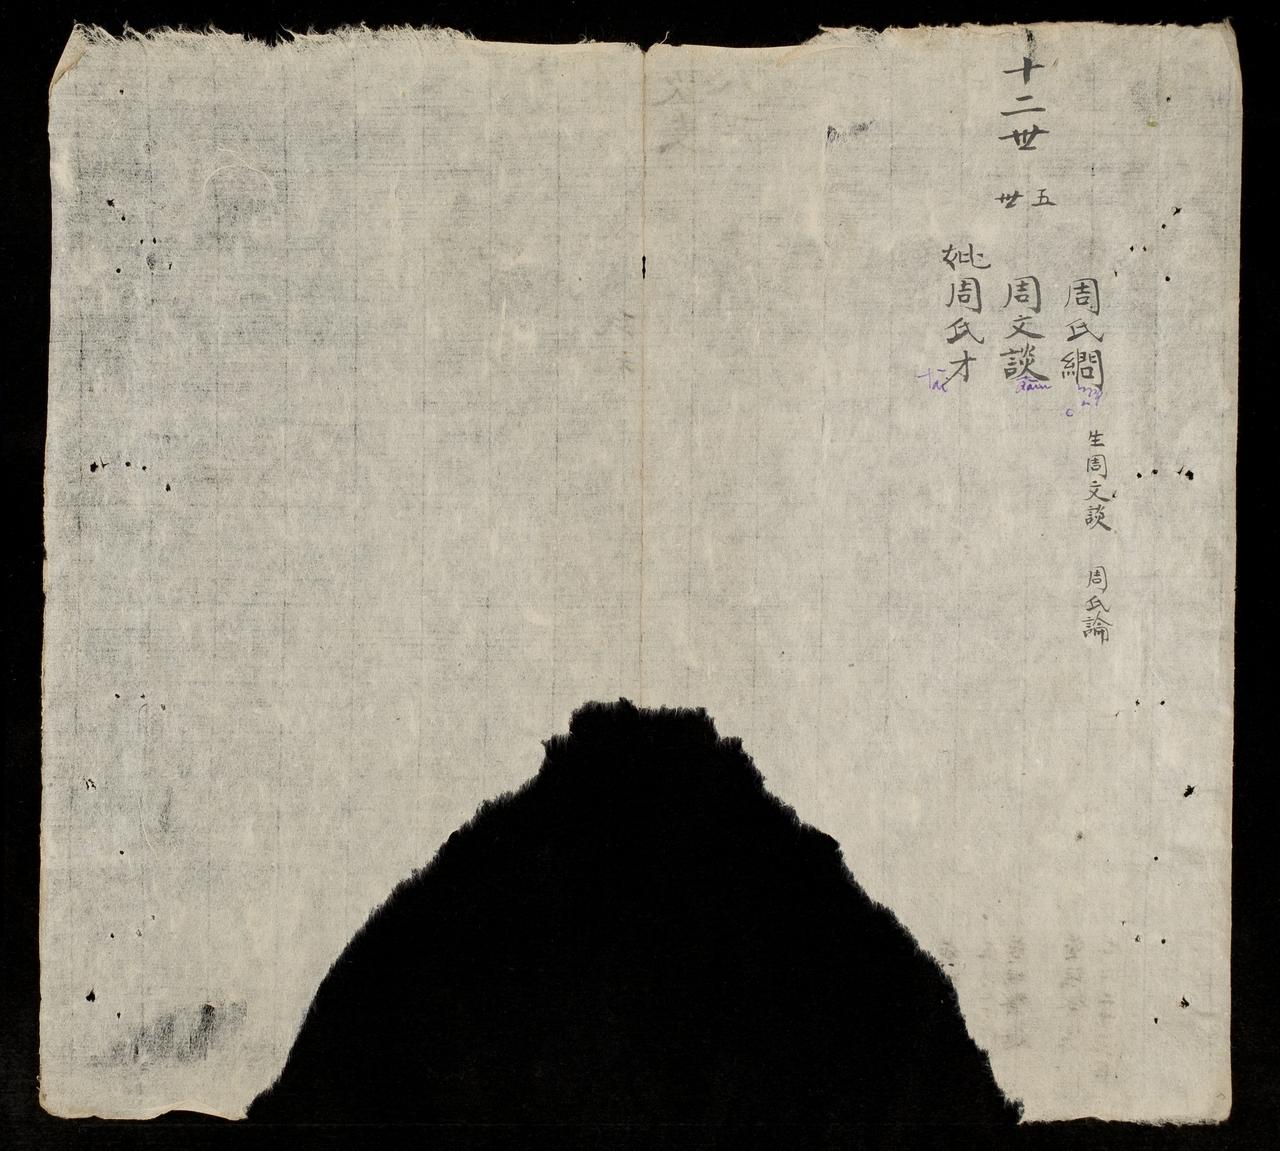 十二卅
五卅
周氏繝
生周文談 周氏論
周文談
妣周氏才
tài